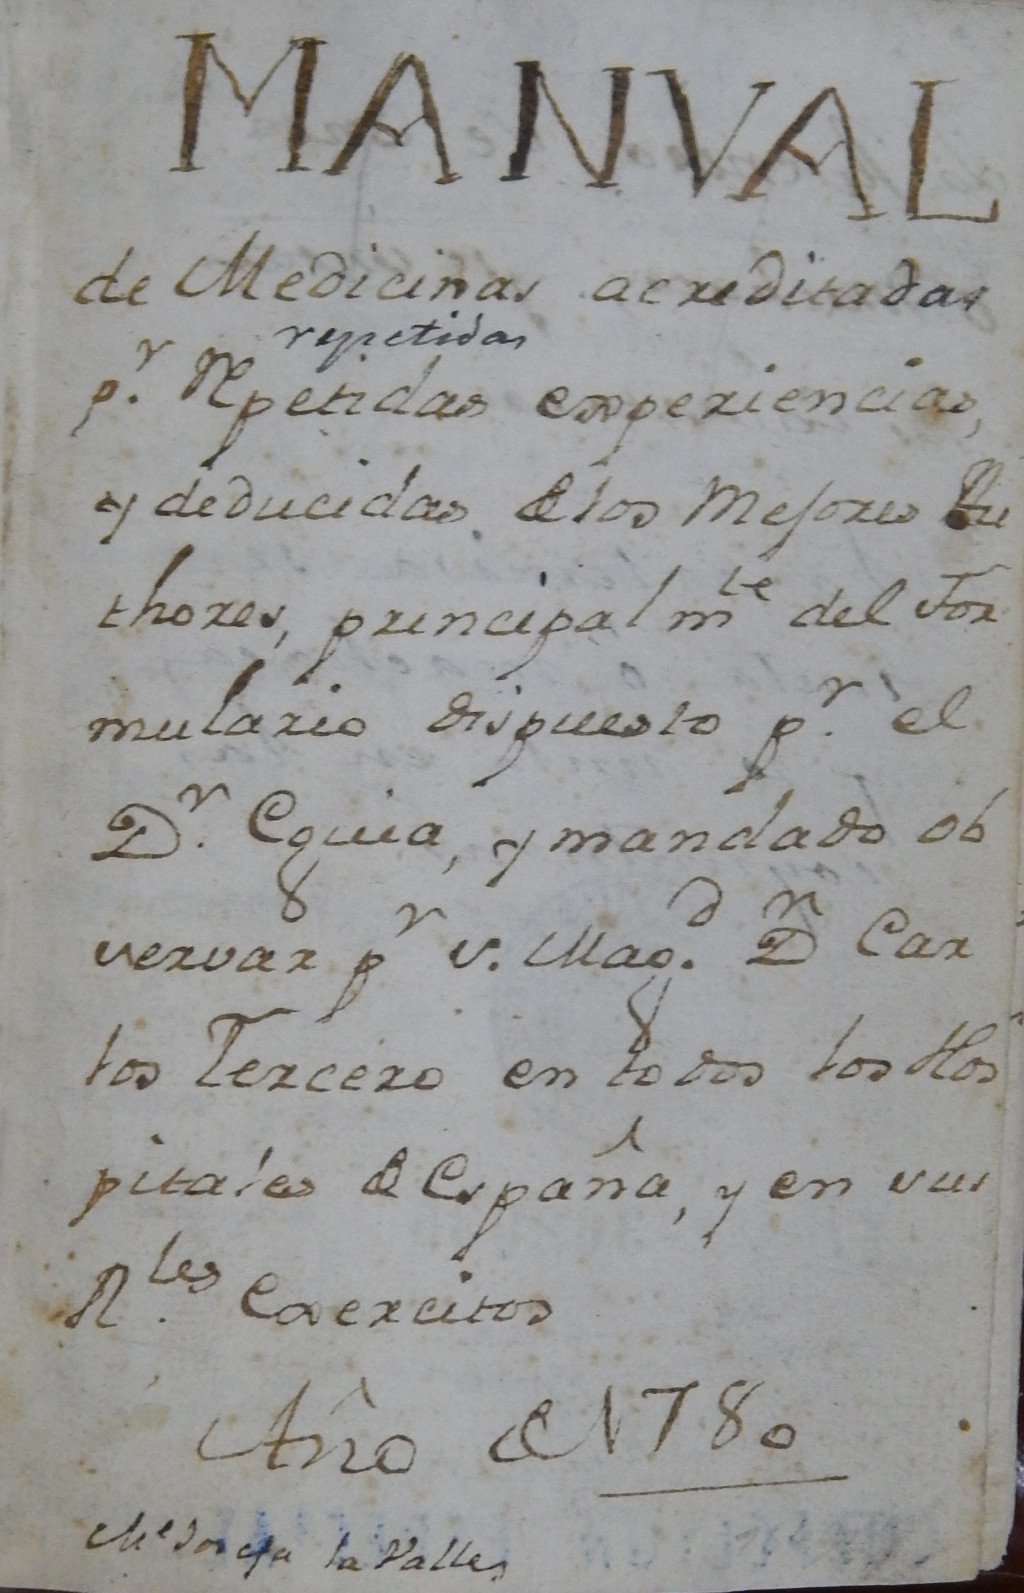 MANVAL
de Medicinas acreditadas
repetidas
p.r Repetidas experiencias,
y deducidas de los Mejores Au
thores, principalmte del For
mulario dispuesto p.r el
D.r Eguia, y mandado ob
servar pr s. Mag.d Dn Car
los Tercero en todos los Hos
pitales de España, y en sus
R.les Exercitos
Año de 1780
Josefa la Valle